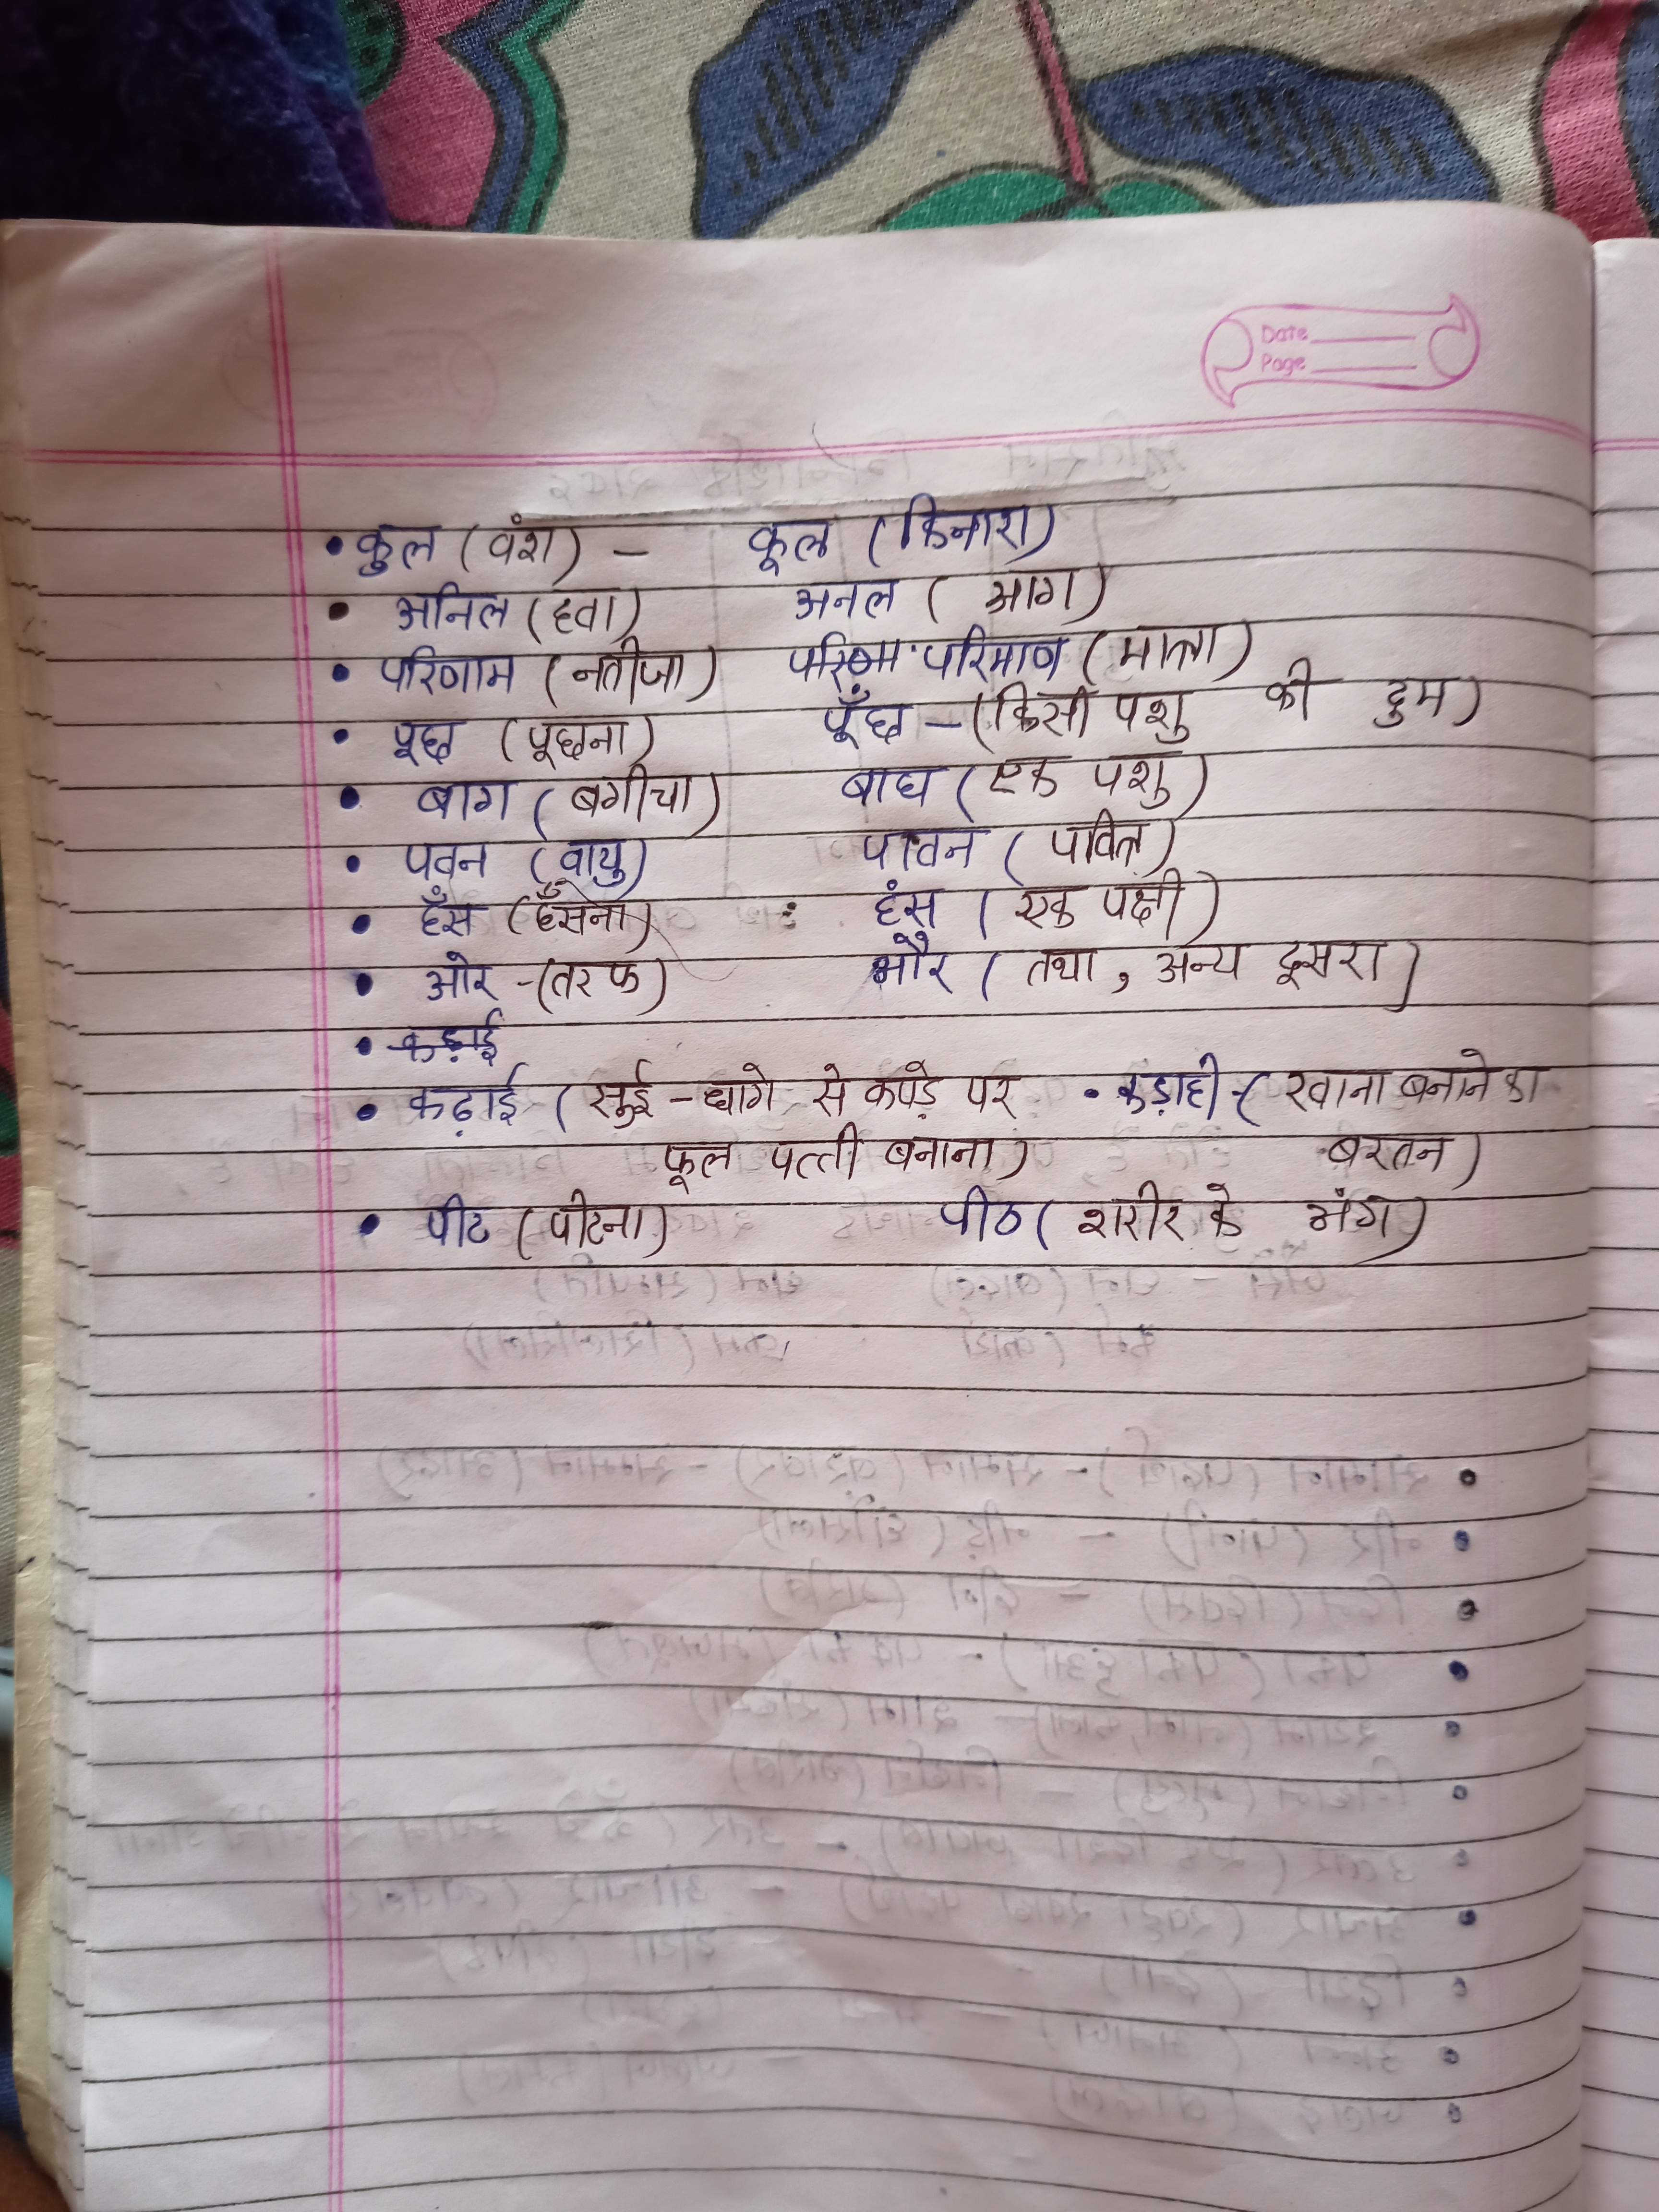 Date
Page
• कुल (वंश) – कूल (किनारा)
• अनिल (हवा) अनल ( आग)
• परिणाम (नतीजा) परिमाण (मात्रा)
• पूछ (पूछना) पूँछ – (किसी पशु की दुम)
• बाग ( बगीचा) बाघ ( एक पशु)
• पवन (वायु) पावन ( पवित्र)
• हँस (हँसना) हंस ( एक पक्षी)
• ओर -(तरफ) और ( तथा, अन्य दूसरा)
• कढ़ाई
• कढ़ाई ( सुई - धागे से कपड़े पर • कड़ाही -( खाना बनाने का
फूल पत्ती बनाना) बरतन)
• पीट (पीटना) पीठ ( शरीर के अंग)